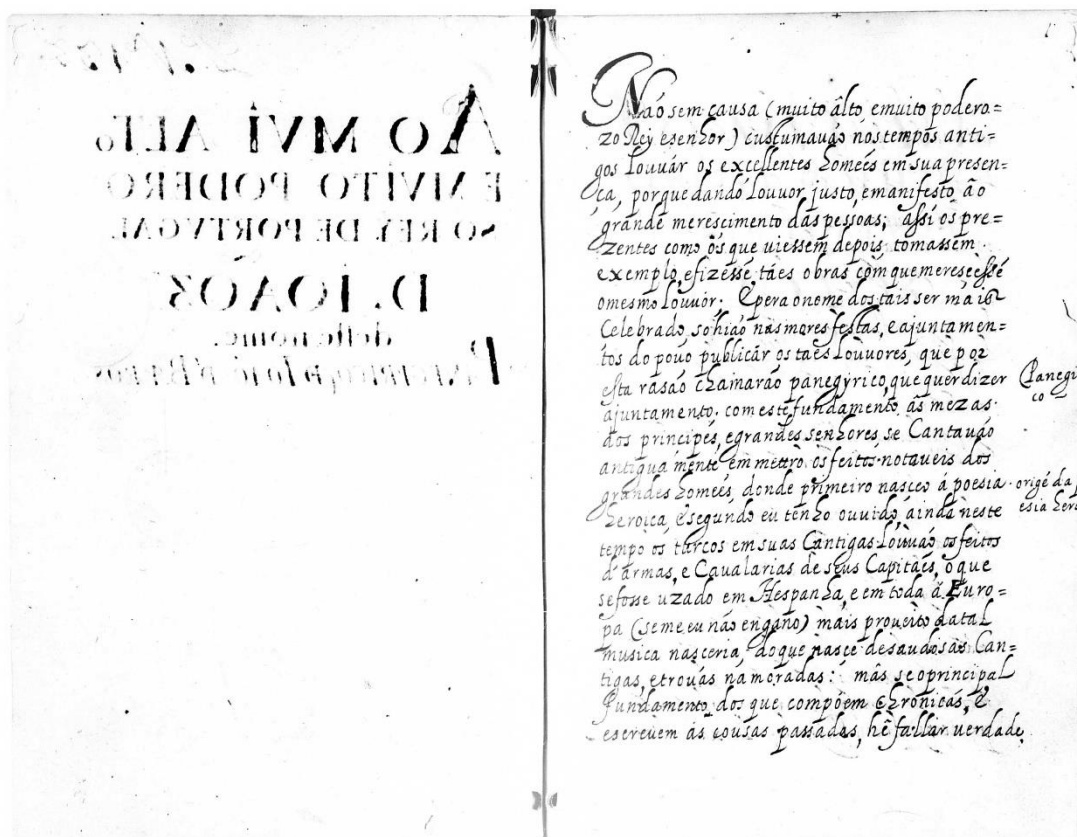 AO MVI ALTo
E MVITO PODERO
SO REY DE PORTVGAL
D. IOAO 3
deste nome.
Não sem causa (muito âlto emuito podero=
zo Rey esenhor) custumauão nos tempos anti=
gos louuár os excellentes homeēs em sua presen=
ça, porque dando louuor justo, emanifesto ão
grande merescimento das pessoas; assi os pre=
zentes como ôs que uiessem depois tomassem
exemplo, efizessē, táes obras com que merescessē
omesmo louuór. E pera o nome dos tais ser máis
Celebrado, sohião nas mores festas, e ajuntamen=
tos do pouo publicár os taés louuorés, que por
esta rasão chamarão panegyrico, que quer dizer
ajuntamento. com este fundamento âs mezas
dos principés, egrandes senhores, se Cantauão
antiguamente em metro os feitos notaueis dos
grandes homeés, donde primeiro nasceo á poesia
heroica, e segundo eu tenho ouuido, ainda neste
tempo os turcos em suas Cantigas louuão os feitos
d'armas, e Caualarias de seus Capitaés, o que
se fosse uzado em Hespanha, e em toda â Euro=
pa (se me eu não engano) máis proueito da tal
musica nasceria, do que nasce de saudosas Can=
tigas, e trouas namoradas: mâs se o principal
fundamento, dos que compõem Chronicás, E
escreuem ás cousas passadas, hê fallar uerdade,
Panegi
co
origē da p
esia hero